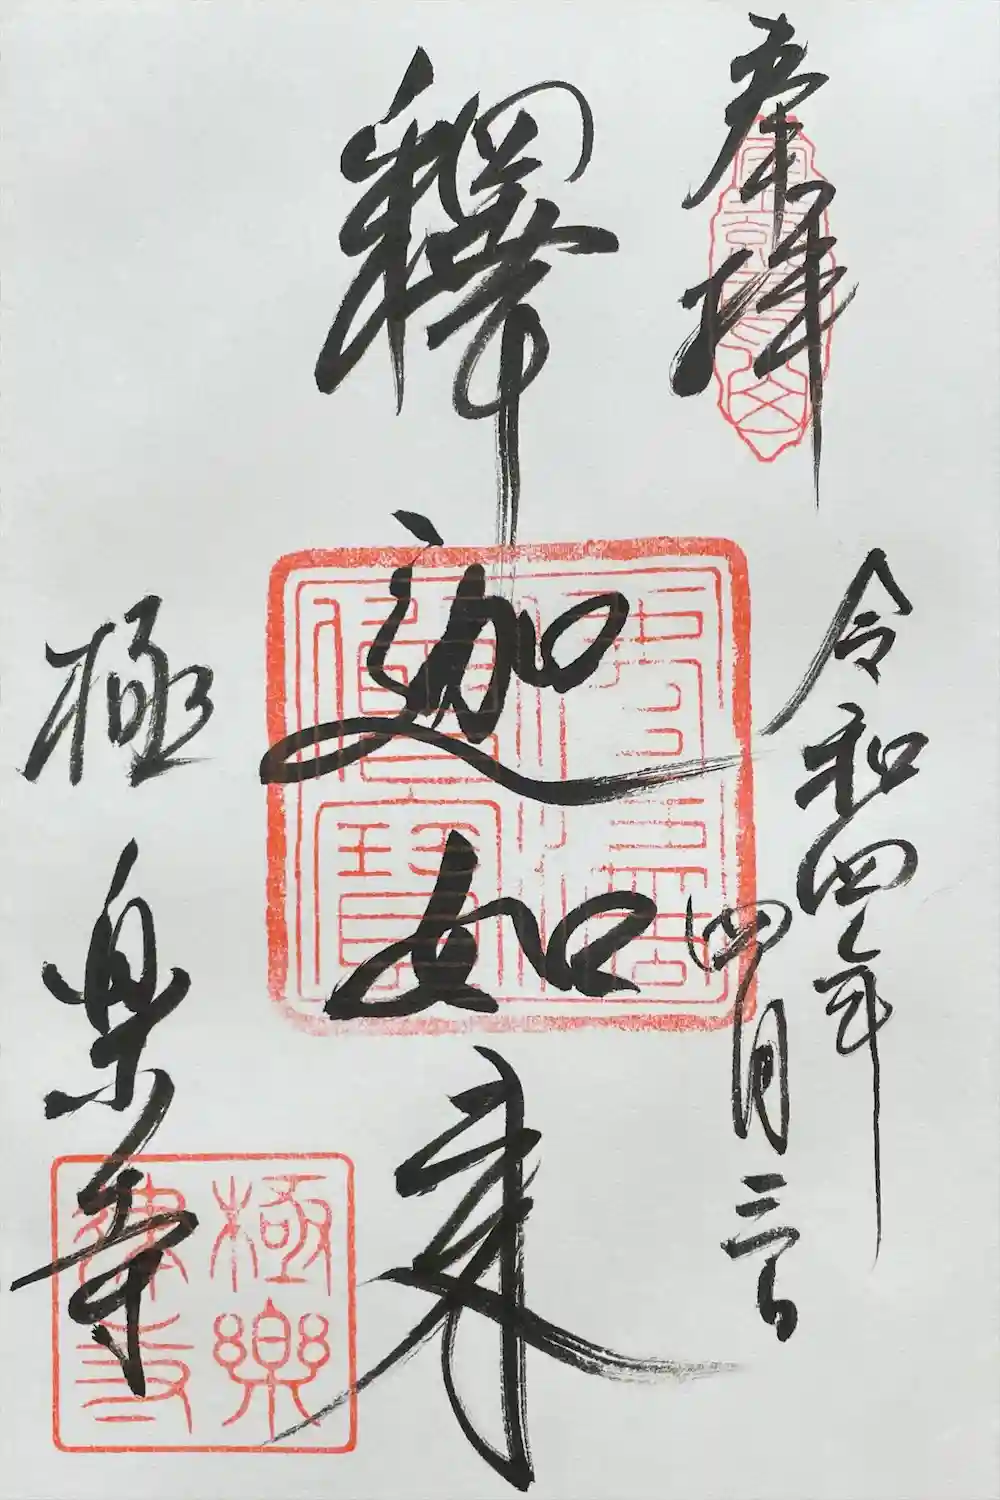 奉拝
令和四年
四月三日
釋迦如来
極楽寺
佛法僧寶
極樂